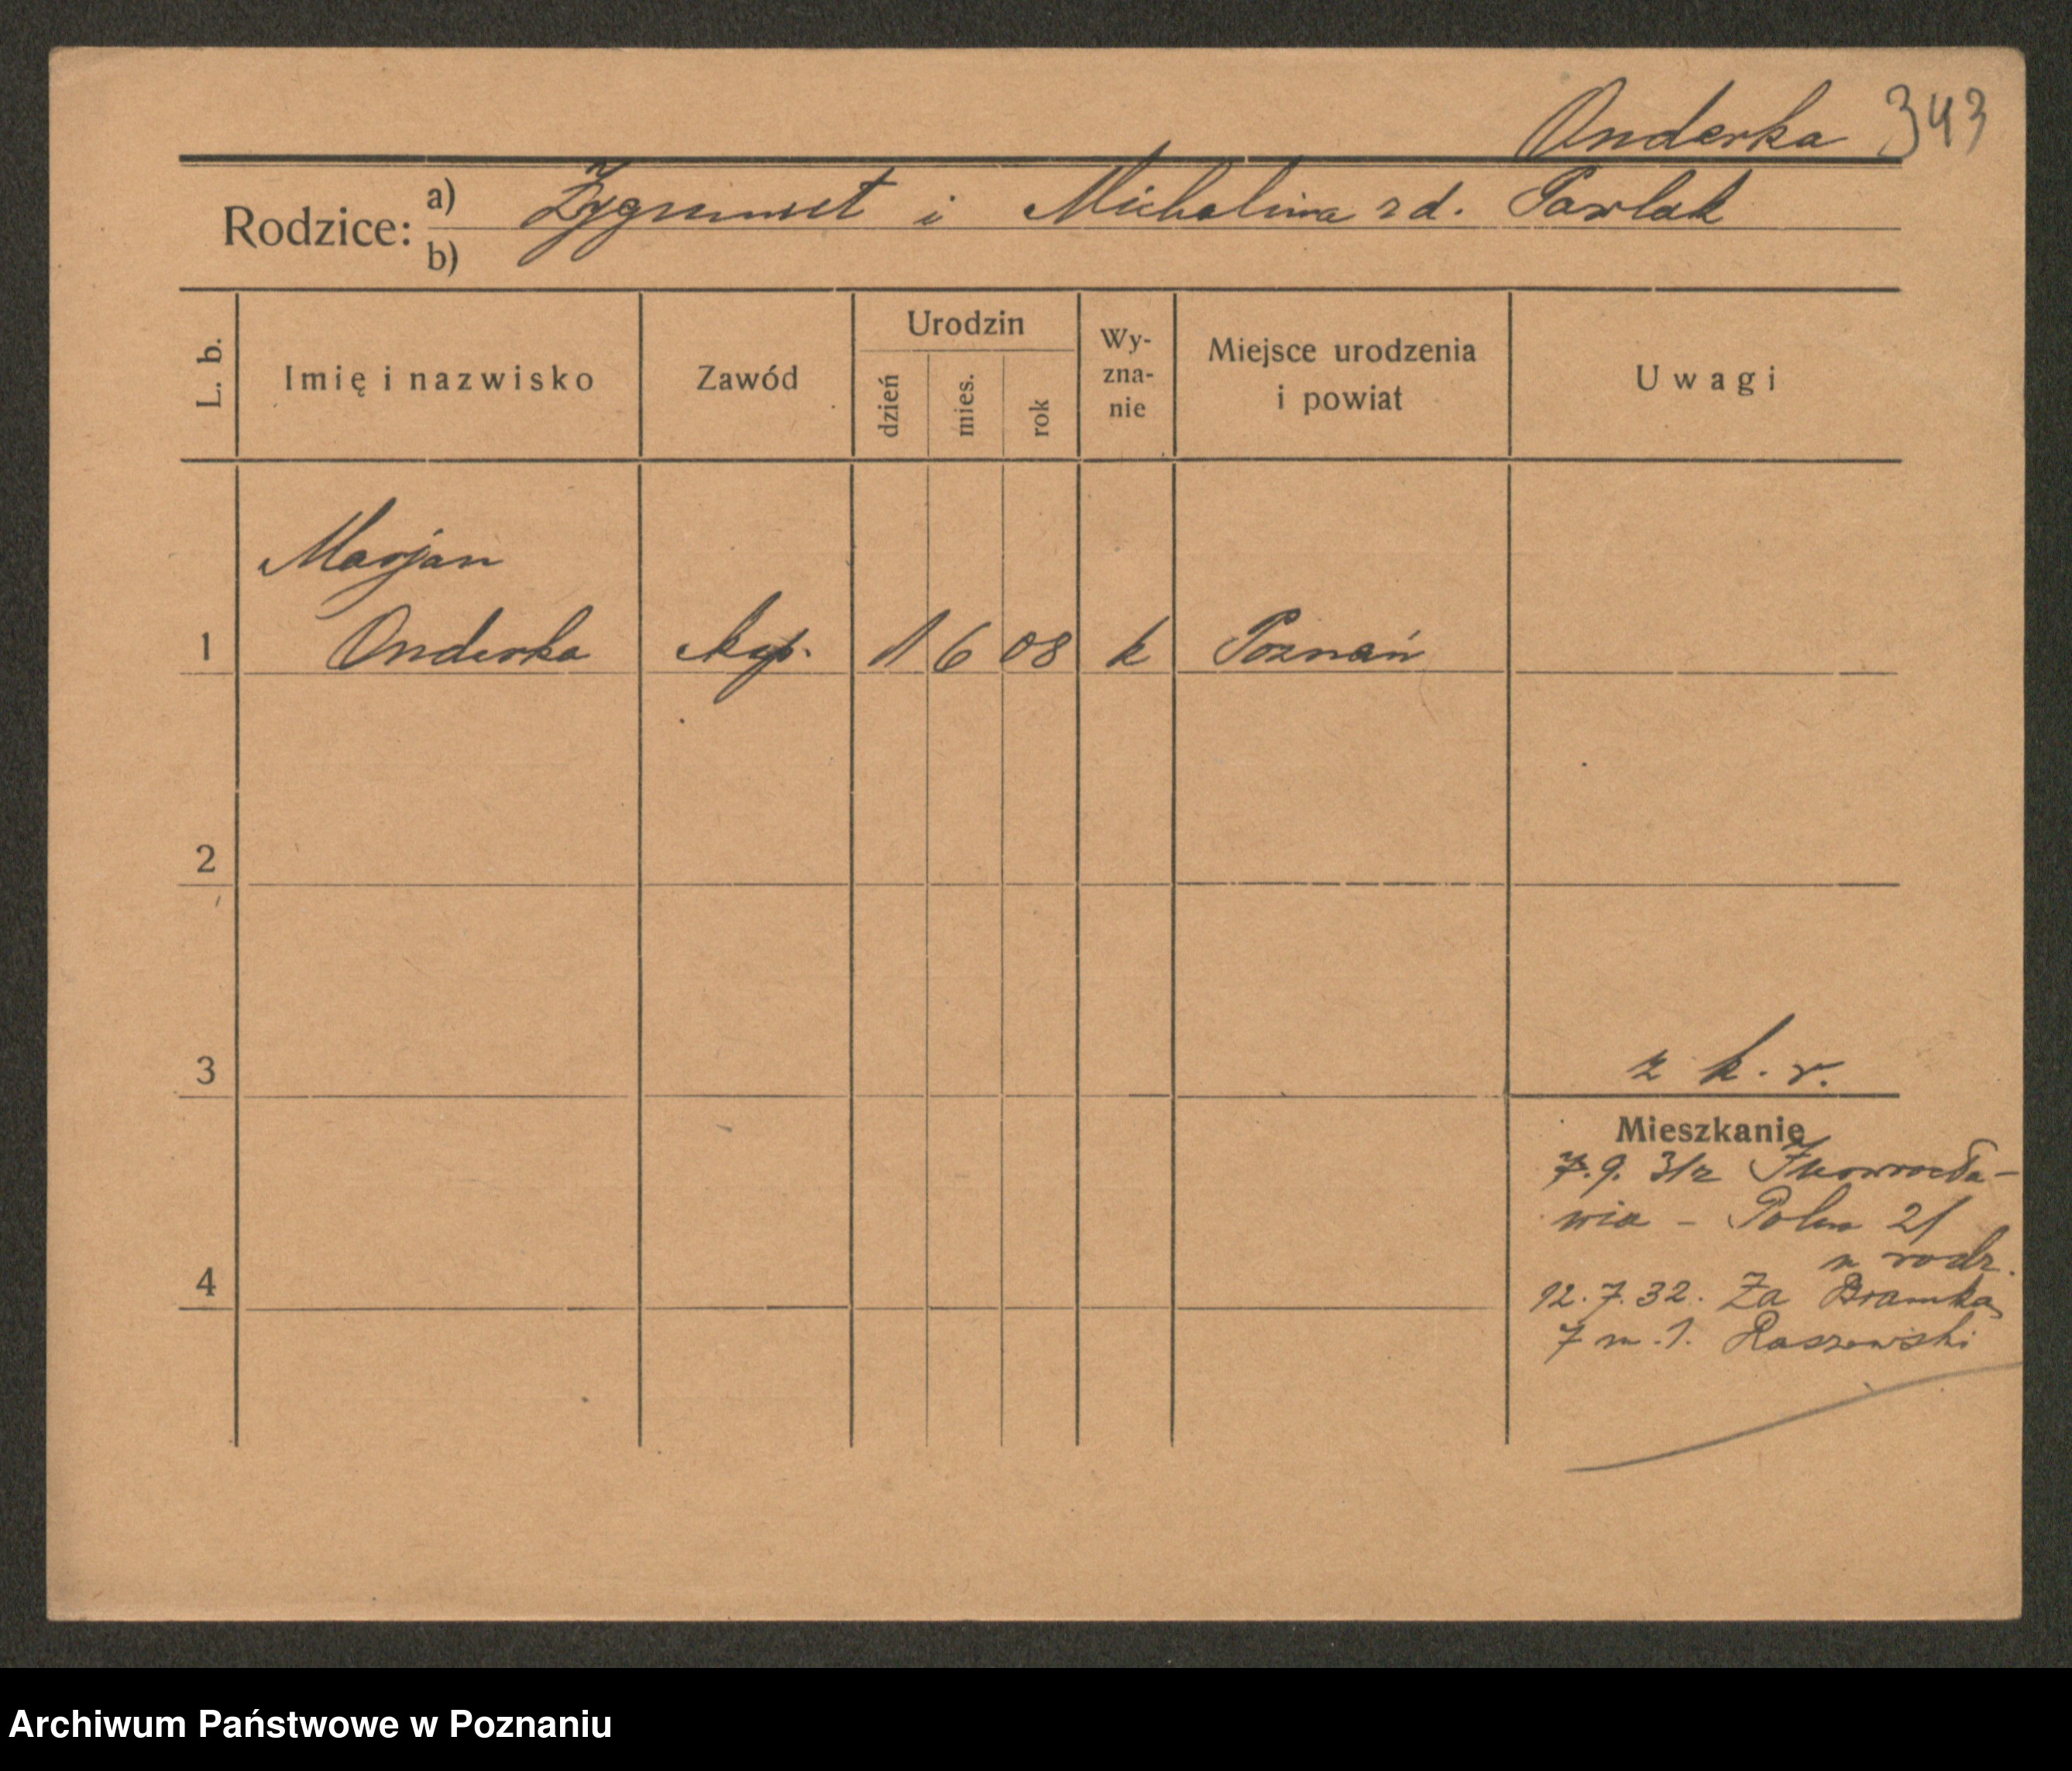 Onderka 343
Rodzice: a) Zygmunt i Michalina z d. Pawlak
b)
L. b. Imię i nazwisko Zawód Urodzin dzień mies. rok Wy-zna-nie Miejsce urodzenia i powiat Uwagi
Marjan
1 Onderka 1 6 08 k Poznań
2
3 z k. r.
Mieszkanie
7.9. 31 z Inowrocła-
wia - Polna 21
u rodz.
4
12.7.32. Za Bramką
7 m. 1. Raszewski
Archiwum Państwowe w Poznaniu